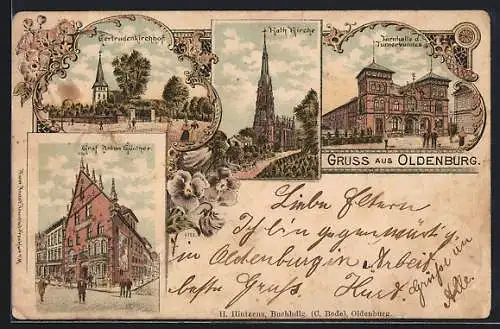 Gertrudenkirchhof
Kath Kirche
Turnhalle d.
Turnervereins
Graf Anton Günther
GRUSS AUS OLDENBURG.
Liebe Eltern
Ich bin gegenwärtig
in Oldenburg in Arbeit
beste Gruss. Kurt.
Grüsse an
Alle.
H. Hintzens, Buchhdlg. (C. Bode), Oldenburg.